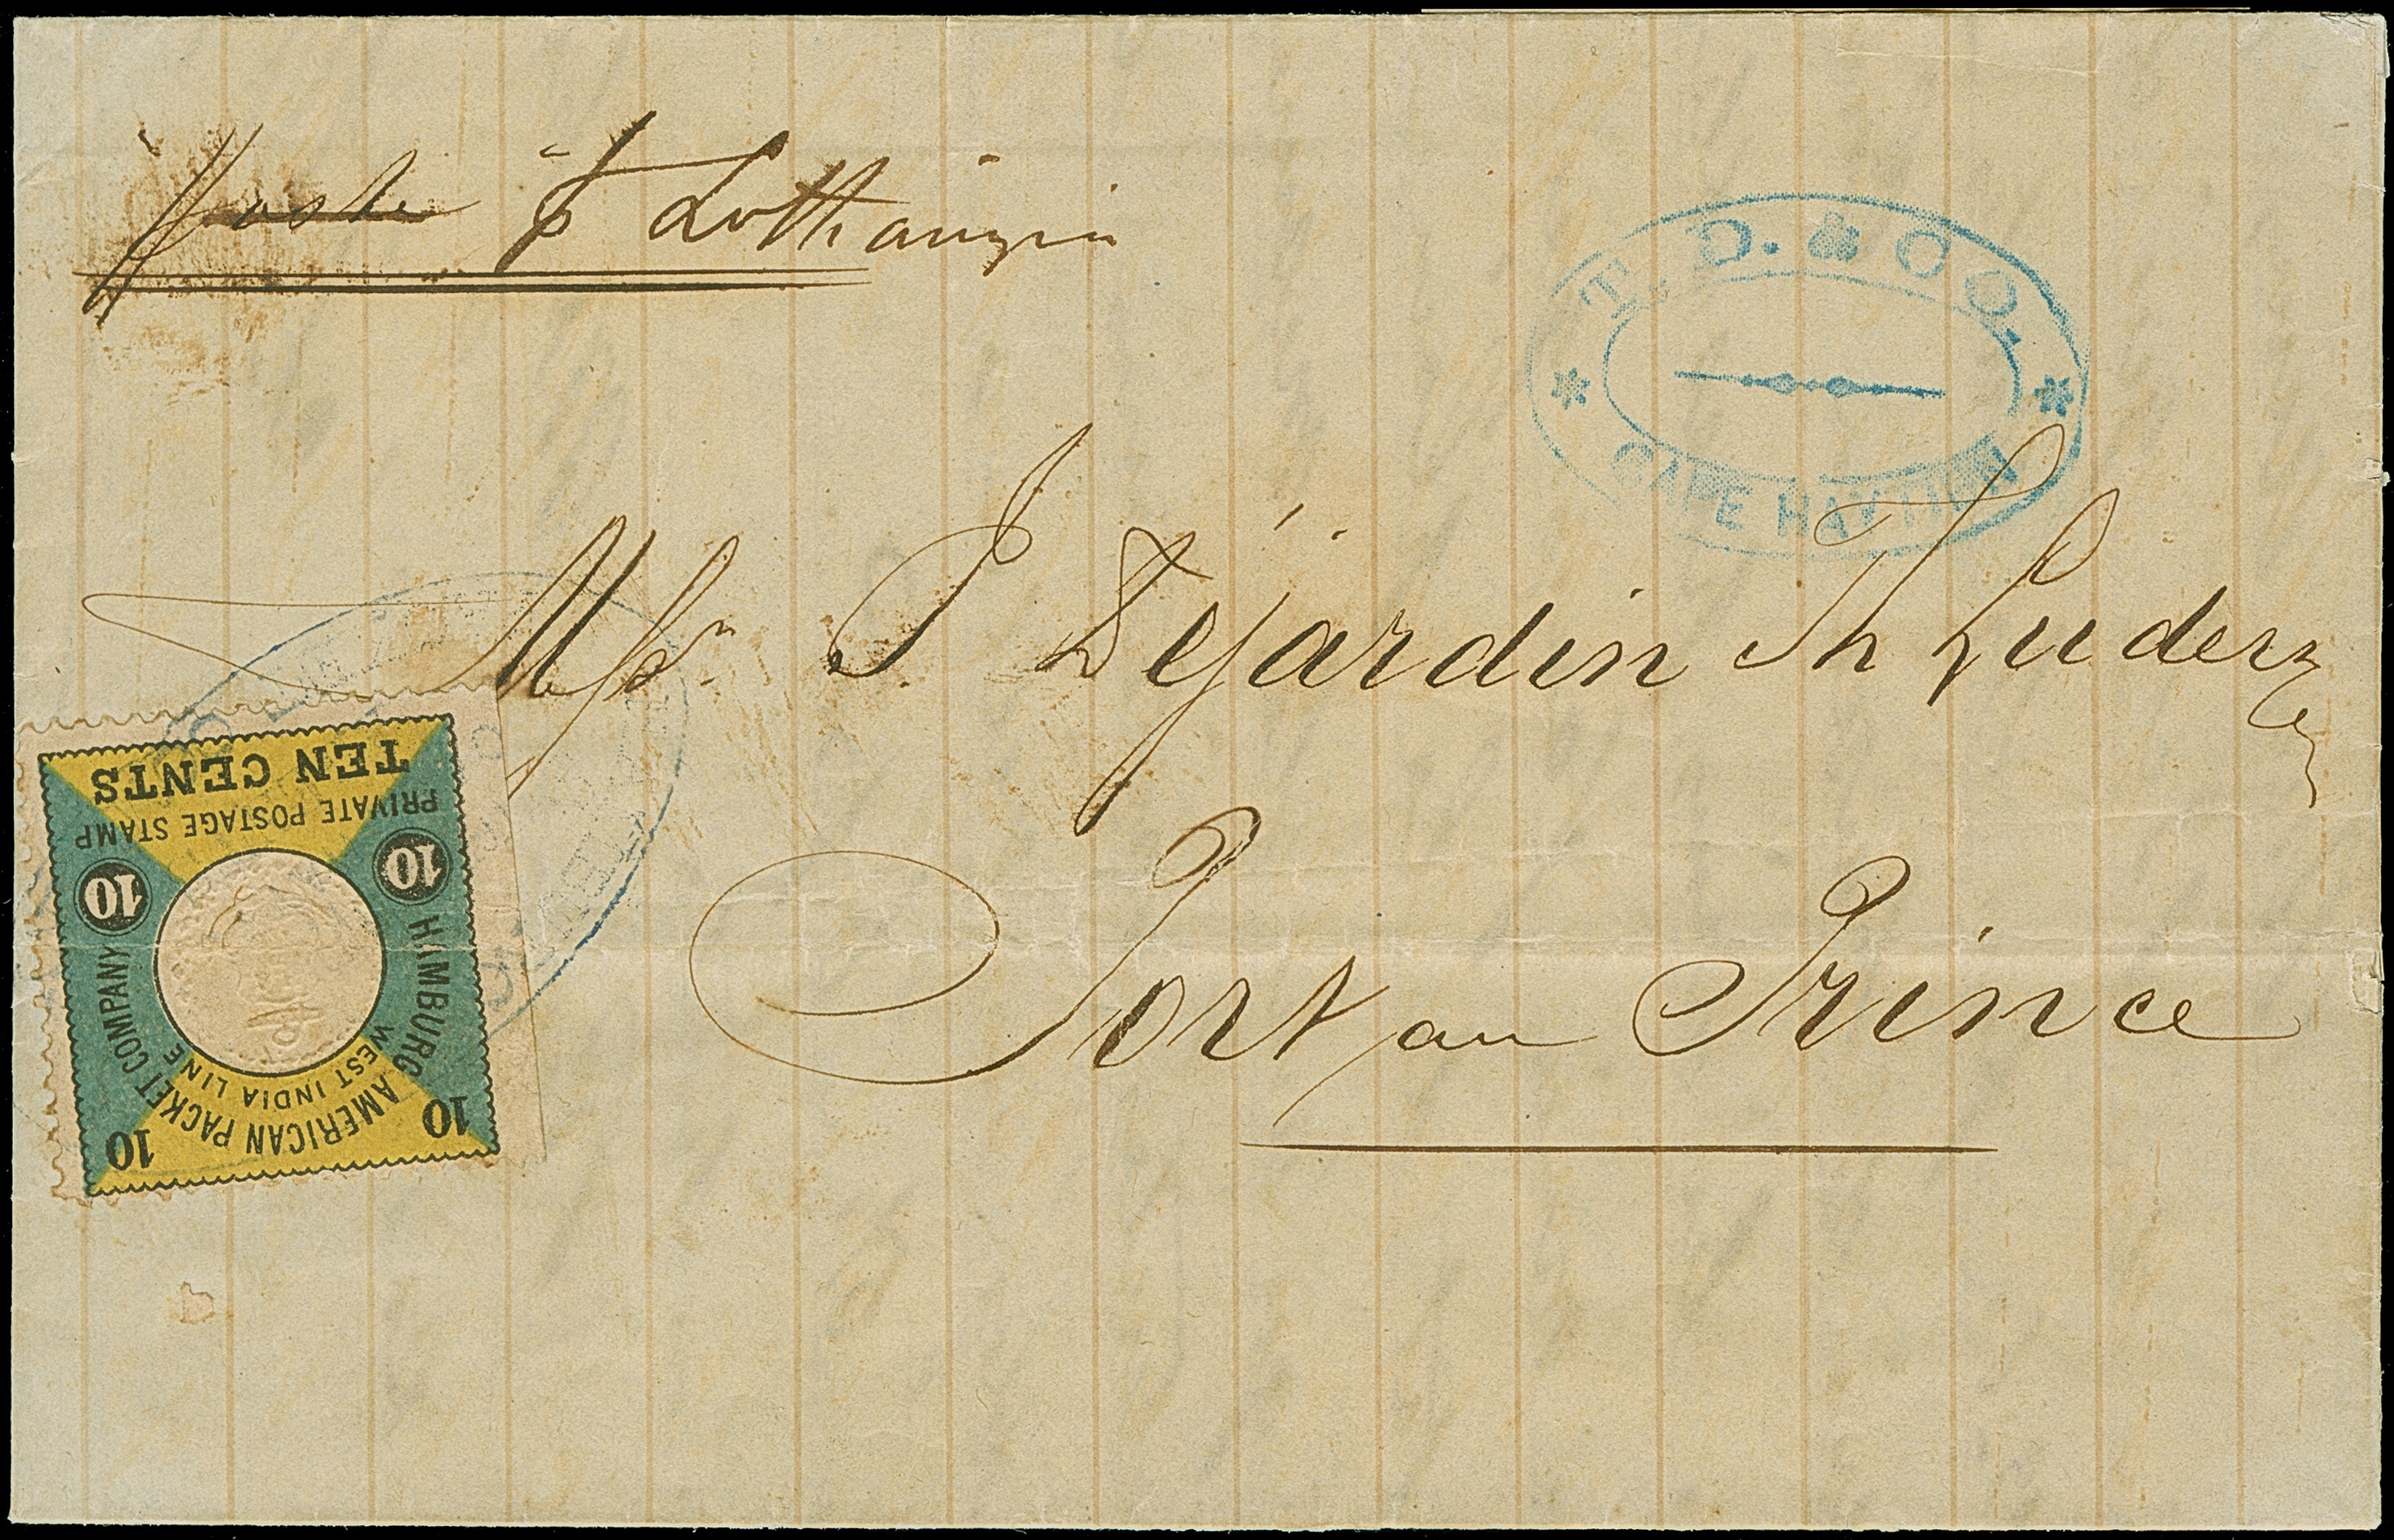 p Lotharingia
T. D. & CO.
CAPE HAYTIEN
J. Déjardin Th Luders
Port au Prince
TEN CENTS
PRIVATE POSTAGE STAMP
10 10
HAMBURG AMERICAN PACKET COMPANY
WEST INDIA LINE
10 10